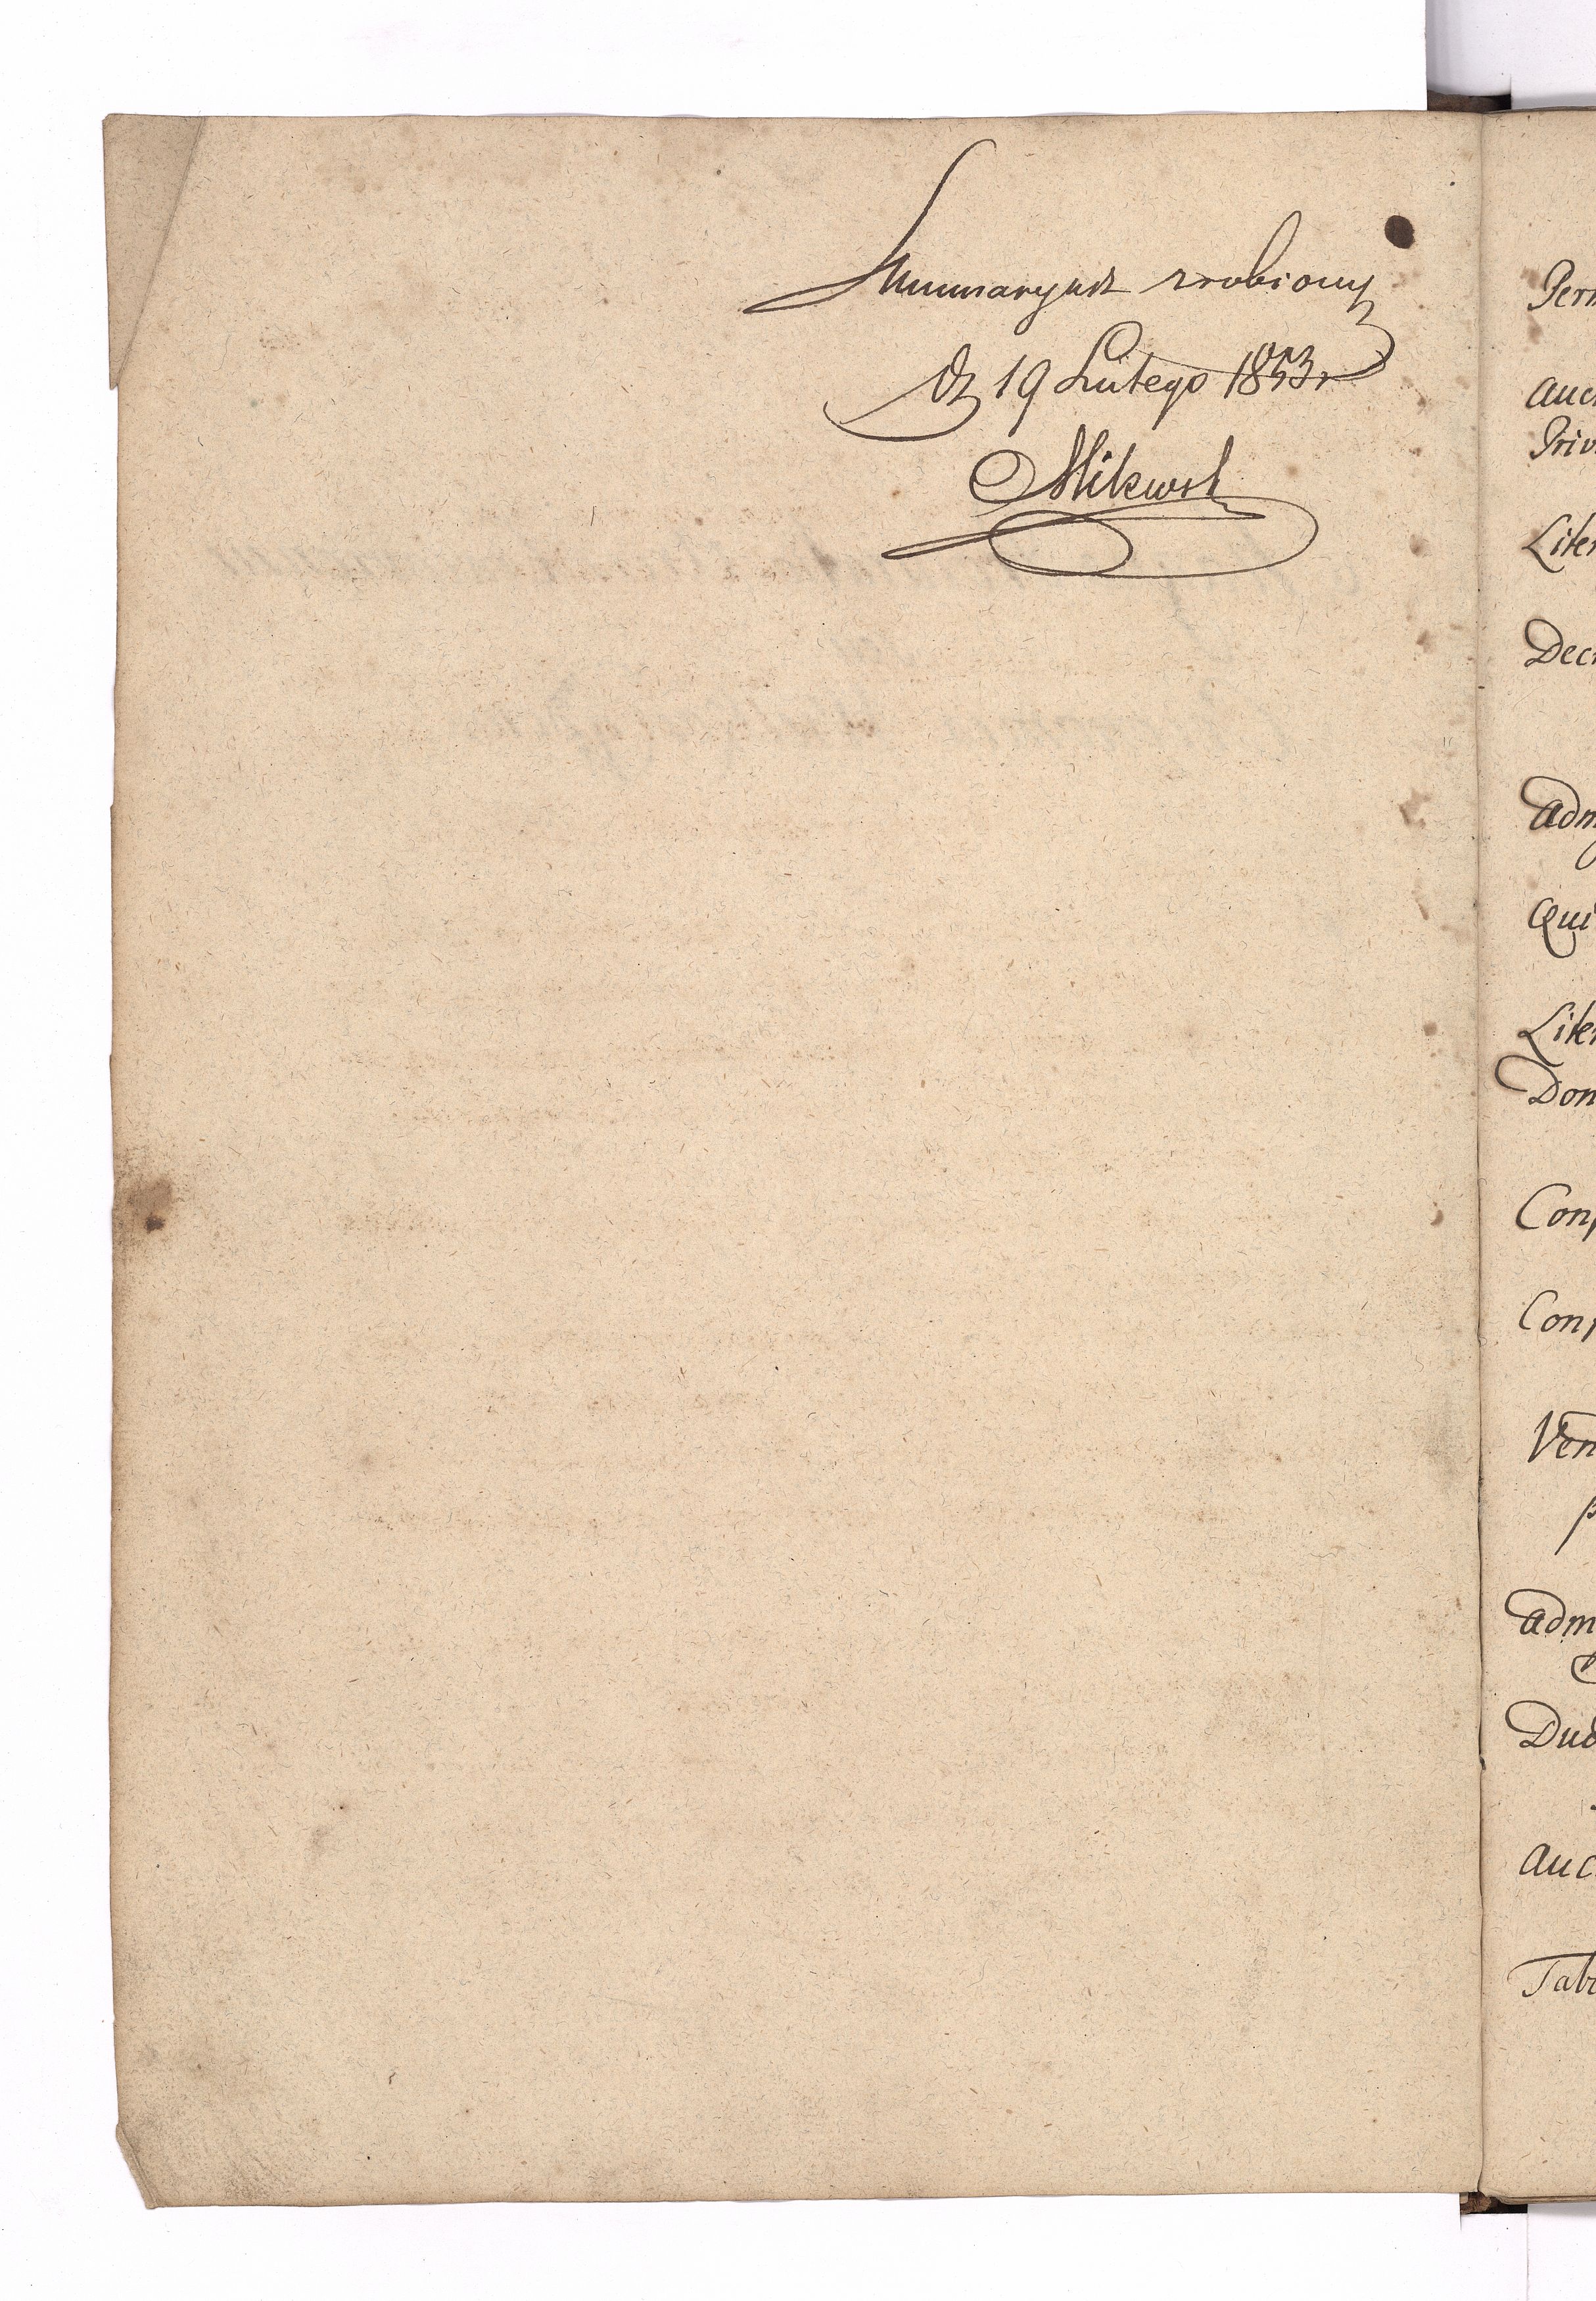 Summaryusz zrobiony
dz 19 Lutego 1853 r
Milewsk
Liter
Decr
Adm
Qui
Liter
Don
Conf
Conf
Ven
p
Adm
Dud
Auc
Tab